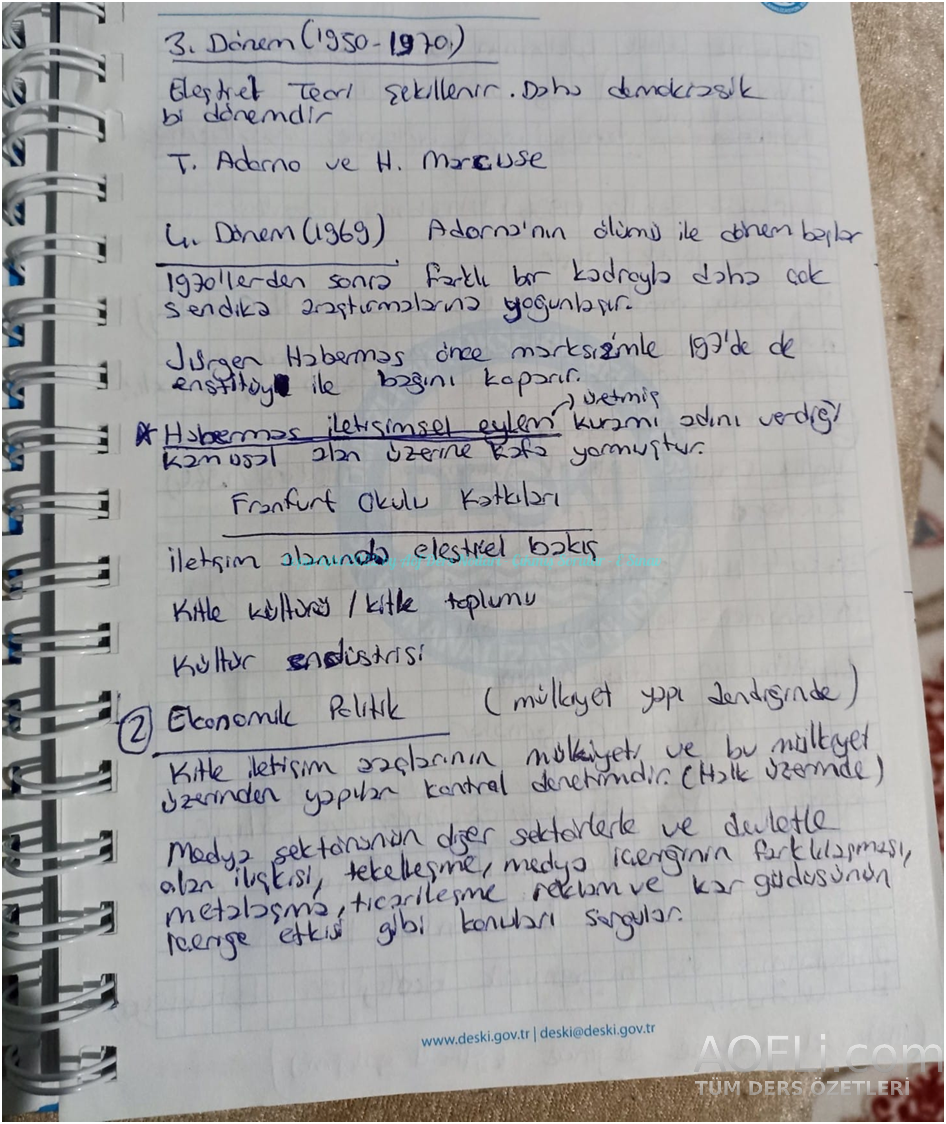 3. Dönem (1950-1970.)
Eleştrel Teori şekillenir. Daha demokrasik
bi dönemdir
T. Adorno ve H. Marcuse
4. Dönem (1969) Adorno'nın ölümü ile dönem başlar
1970'lerden sonra farklı bir kadroyla daha çok
sendika araştırmalarına yoğunlaşır.
Jürgen Habermas önce marksizimle 197'de de
enstitüyü ile bağını koparır.
üretmiş
* Habermas iletişimsel eylem kuramı adını verdiği
kamusal alan üzerine kafa yormuştur.
Franfurt Okulu Katkıları
iletşim alanında elestrel bakış
Kitle kültürü / kitle toplumu
Kültür endüstrisi
② Ekonomik Politik (mülkiyet yapı dendiğinde)
Kitle iletişim araçlarının mülkiyeti ve bu mülkiyet
üzerinden yapılan kontral denetimdir. (Halk üzerinde)
Medya sektörünün diğer sektörlerle ve devletle
olan ilişkisi, tekelleşme, medya içeriğinin farklılaşması,
metalaşma, ticarileşme reklam ve kar güdüsünün
içeriğe etkisi gibi konuları sorgular.
www.deski.gov.tr | deski@deski.gov.tr
AOFLi.com
TÜM DERS ÖZETLERİ